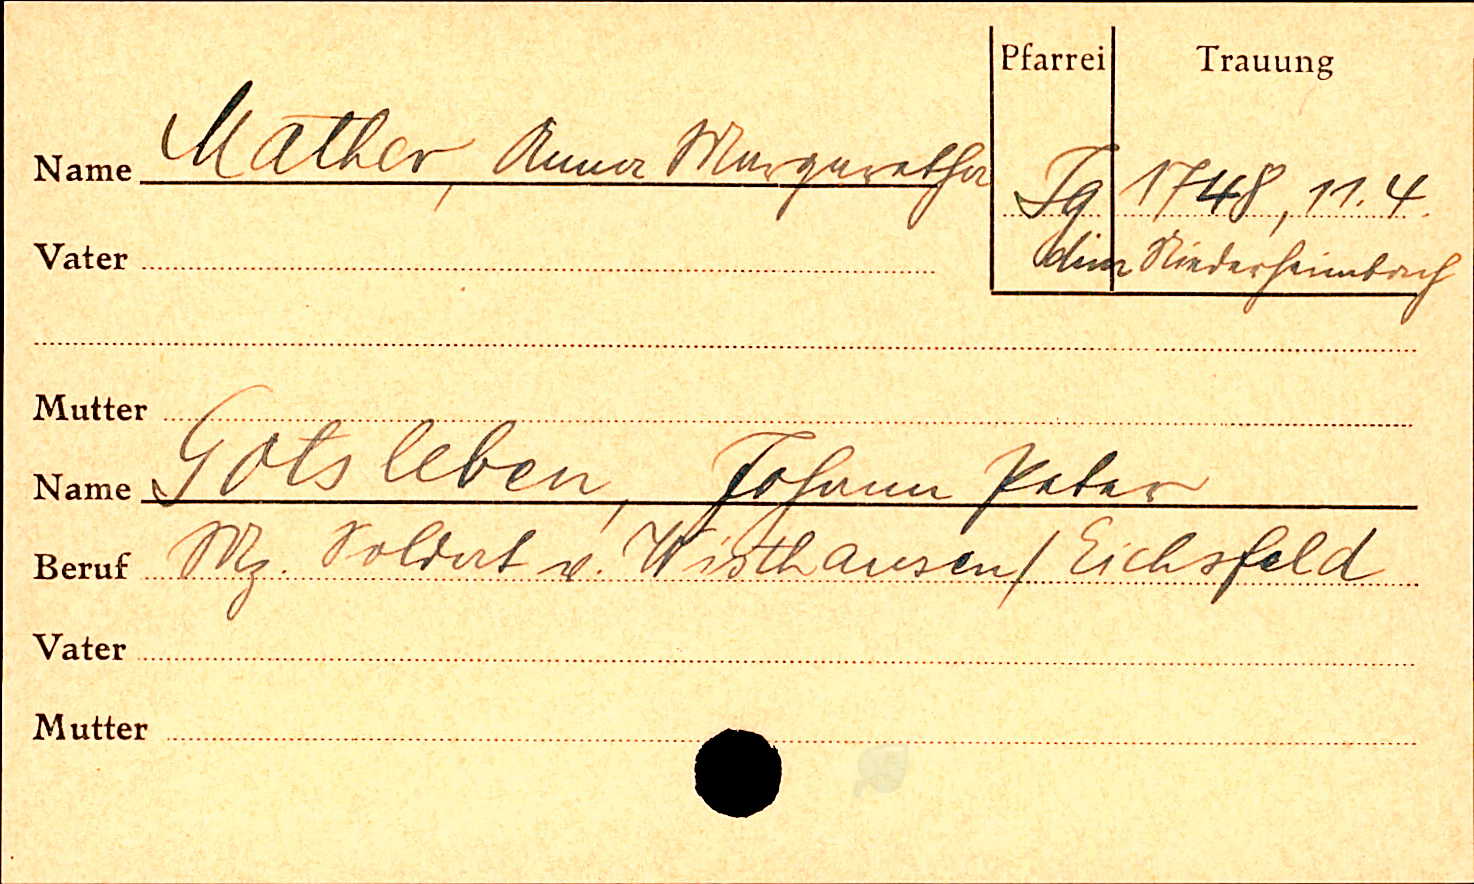 Pfarrei Trauung
Name Mather, Anna Margaretha
Jg 1748, 11.4.
dim Niederheimbach
Vater
Mutter
Name Gotsleben, Johann Peter
Beruf Mz. Soldat v. Wisthausen / Eichsfeld
Vater
Mutter